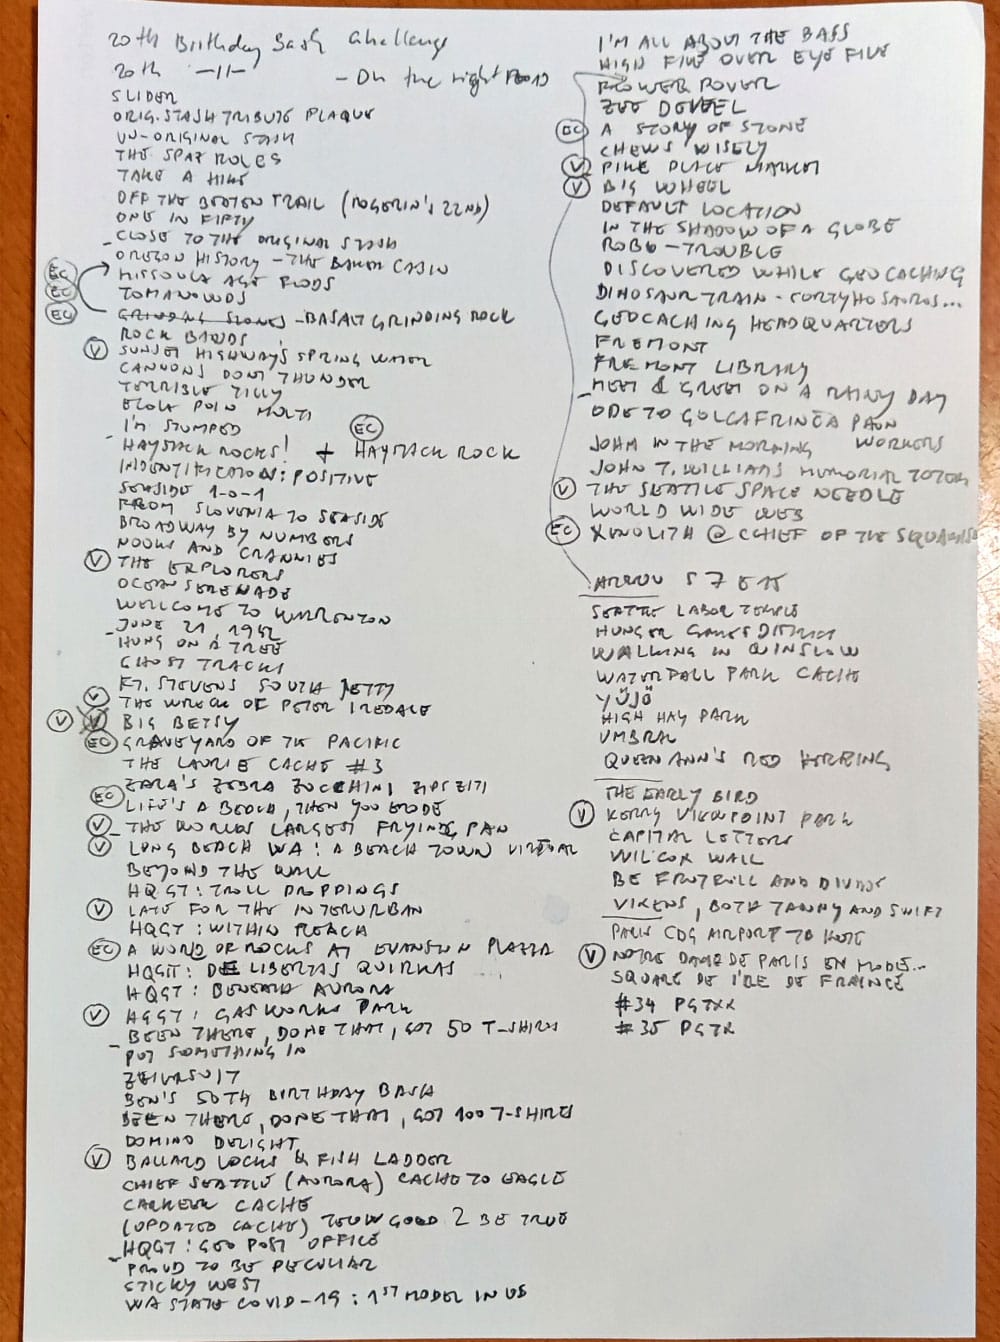 20th Birthday Bash Challenge
20th -11- - On the right road
SLIDER
ORIG. STASH TRIBUTE PLAQUE
UN-ORIGINAL STASH
THE SPAT ROLES
TAKE A HIKE
OFF THE BEATEN TRAIL (ROGERIN'S 22ND)
ONE IN FIFTY
CLOSE TO THE ORIGINAL STASH
OREGON HISTORY - THE BAKER CABIN
EC MISSOULA AGE FLODS
EC TOMANOWOS
EC GRINDING STONES - BASALT GRINDING ROCK
ROCK BANDS
V SUNSET HIGHWAY'S SPRING WATER
CANNONS DONT THUNDER
TERRIBLE TILLY
ECOLA POIN MULTI
I'M STUMPED
HAYSTACK ROCKS! + EC HAYSTACK ROCK
INDENTIFICATION: POSITIVE
SEASIDE 1-0-1
FROM SLOVENIA TO SEASIDE
BROADWAY BY NUMBERS
NOOKS AND CRANNIES
V THE EXPLORERS
OCEAN SERENADE
WELLCOME TO WARRENTON
JUNE 21, 1942
HUNG ON A TREE
GHOST TRACKS
FT. STEVENS SOUTH JETTY
V THE WRECK OF PETER IREDALE
V V BIG BETSY
EC GRAVEYARD OF THE PACIFIC
THE LAURIE CACHE #3
ZARA'S ZEBRA ZUCCHINI ZIPS ZITI
EC LIFE'S A BEACH, THEN YOU ERODE
V THE WORLDS LARGEST FRYING PAN
V LONG BEACH WA: A BEACH TOWN VIRTUAL
BEYOND THE WALL
HQGT: TROLL DROPPINGS
V LATE FOR THE INTERURBAN
HQGT: WITHIN REACH
EC A WORLD OF ROCKS AT EVANSTON PLAZZA
HQGT: DE LIBERTAS QUIRKAS
HQGT: BENEATH AURORA
V HQGT: GAS WORKS PARK
BEEN THERE, DONE THAT, GOT 50 T-SHIRTS
PUT SOMETHING IN
ZEITGEIST
BEN'S 50TH BIRTHDAY BASH
BEEN THERE, DONE THAT, GOT 100 T-SHIRTS
DOMINO DELIGHT
V BALLARD LOCKS & FISH LADDER
CHIEF SEATTLE (AURORA) CACHE TO EAGLE
CARKEEK CACHE
(UPDATED CACHE) TOUW GOOD 2 BE TRUE
HQGT: GEO POST OFFICE
PROUD TO BE PECULIAR
STICKY WEST
WA STATE COVID-19: 1ST MODEL IN US
I'M ALL ABOUT THE BASS
HIGH FIVE OVER EYE FIVE
FLOWER POWER
ZEE DEVEEL
EC A STORY OF STONE
CHEWS WISELY
V PIKE PLACE MARKET
V BIG WHEEL
DEFAULT LOCATION
IN THE SHADOW OF A GLOBE
ROBO-TROUBLE
DISCOVERED WHILE GEOCACHING
DINOSAUR TRAIN - CORTYHOSAUROS...
GEOCACHING HEADQUARTERS
FREMONT
FREMONT LIBRARY
MEET & GREET ON A RAINY DAY
ODE TO GOLGAFRINCA PAUN WORKERS
JOHN IN THE MORNING
JOHN T. WILLIAMS MEMORIAL TOTEM
V THE SEATTLE SPACE NEEDLE
WORLD WIDE WEB
EC XENOLITH @ CCHIEF OF THE SQUAMISH
ARROW
SEATTLE LABOR TEMPLE
HUNGER GAMES DISTRICT
WALKING IN WINSLOW
WATERFALL PARK CACHE
HIGH HAY PARK
UMBRAL
QUEEN ANN'S RED HERRING
THE EARLY BIRD
V KERRY VIEWPOINT PARK
CAPITAL LETTERS
WILCOX WALL
BE FRUTFULL AND DIVIDE
VIXENS, BOTH TAWNY AND SWIFT
PARIS CDG AIRPORT TO KOTE
V NOTRE DAME DE PARIS EN MODE...
SQUARE DE L'ILE DE FRANCE
#34 PGTXR
#35 PGTR